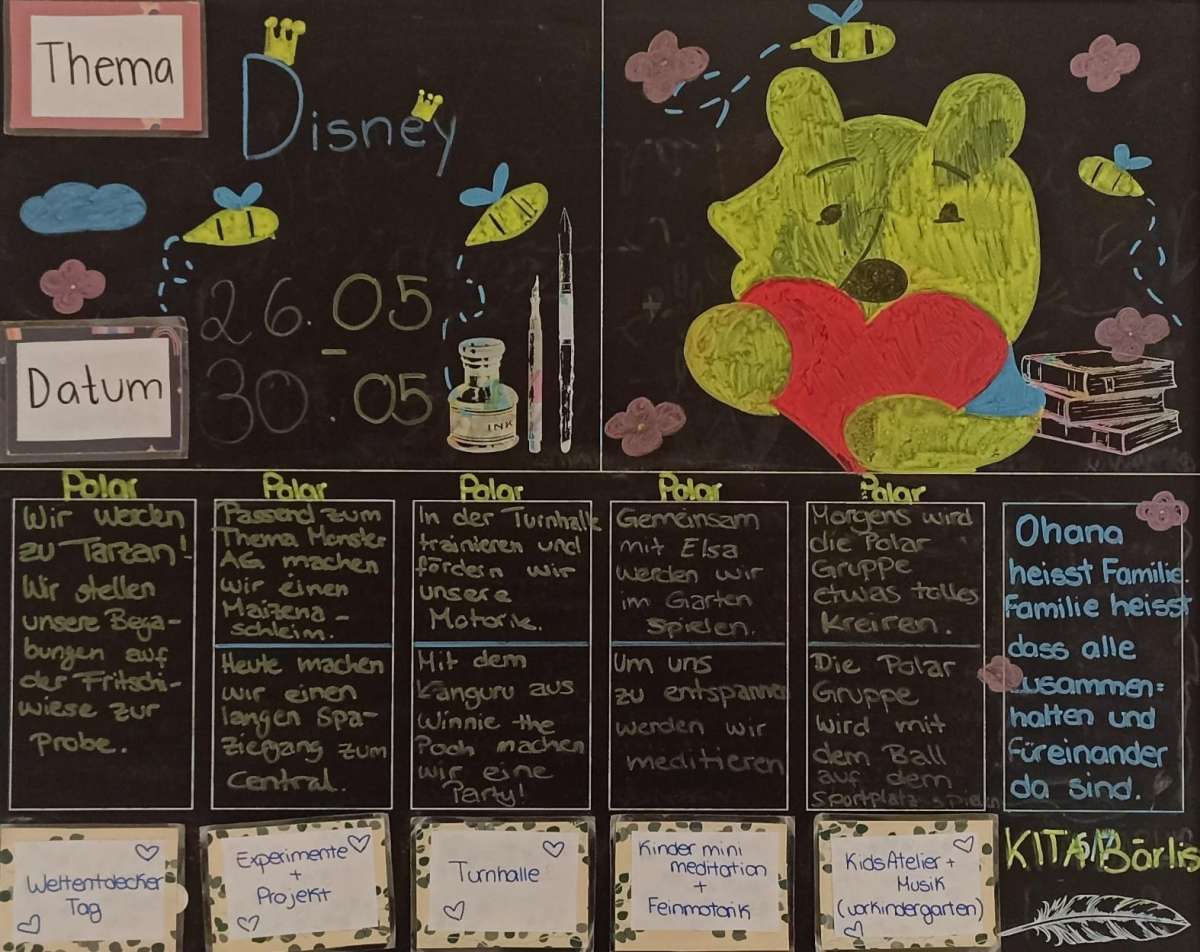 Thema
Disney
26.05
Datum
30.05
INK
Polar
Wir werden
zu Tarzan!
Wir stellen
unsere Bega-
bungen auf
der Fritschi-
wiese zur
Probe.
Polar
Passend zum
Thema Monster
AG machen
wir einen
Maizena-
schleim.
Heute machen
wir einen
langen Spa-
ziergang zum
Central.
Polar
In der Turnhalle
trainieren und
fördern wir
unsere
Motorik.
Mit dem
Känguru aus
Winnie the
Pooh machen
wir eine
Party!
Polar
Gemeinsam
mit Elsa
werden wir
im Garten
spielen.
Um uns
zu entspannen
werden wir
meditieren
Polar
Morgens wird
die Polar
Gruppe
etwas tolles
kreiren.
Die Polar
Gruppe
wird mit
dem Ball
auf dem
Sportplatz spielen
Ohana
heisst Familie.
Familie heisst
dass alle
zusammen=
halten und
füreinander
da sind.
Weltentdecker
Tag
Experimente
+
Projekt
Turnhalle
Kinder mini
meditation
+
Feinmotorik
Kids Atelier +
Musik
(vorkindergarten)
KITA Bärlis